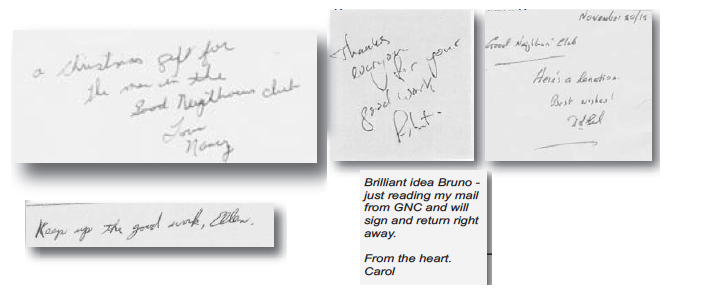 a Christmas gift for
the men in the
Good Neighbours club
Love
Nancy
Thanks
everyone
for your
good work
November 30/15
Good Neighbours' Club
Here's a donation.
Best wishes!
Keep up the good work, Ellen.
Brilliant idea Bruno -
just reading my mail
from GNC and will
sign and return right
away.
From the heart.
Carol